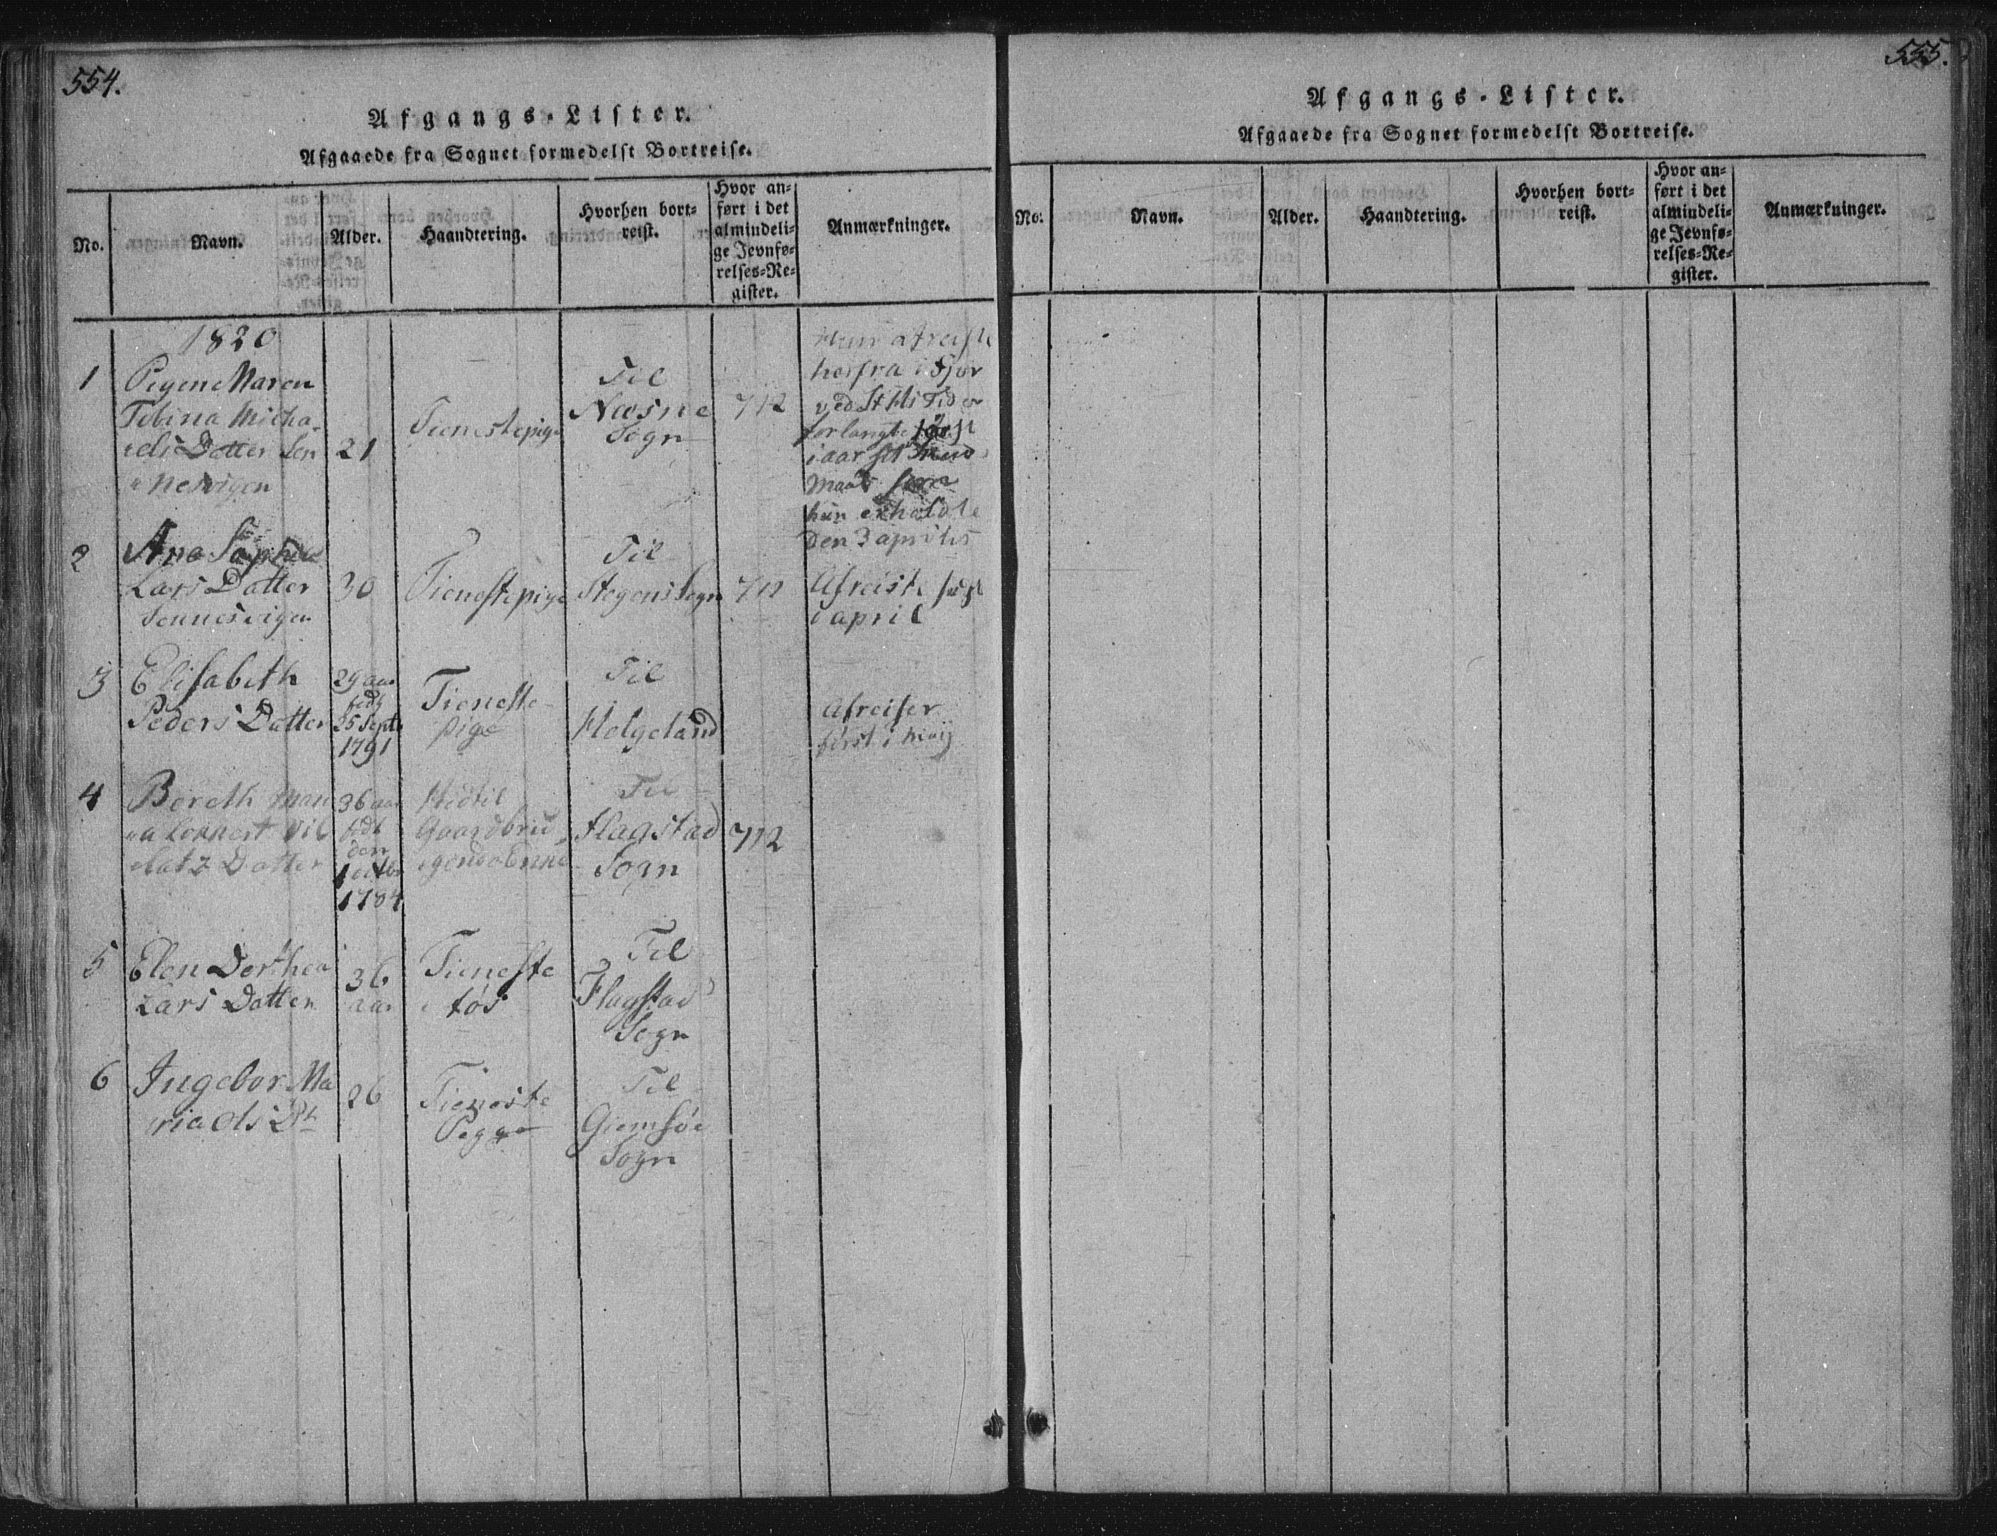 554.
Afgangs-Lister.
Afgaaede fra Sognet formedelst Bortreise.
No.
Navn.
Alder.
Haandtering.
Hvorhen bort-
reist.
Hvor an-
ført i det
almindeli-
ge Jevnfø-
relses-Re-
gister.
Anmærkninger.
1820
1
Pigen Maren
Tobina Micha-
elis Datter Sen
nesvigen
21
Tienestepige
Til
Næsne
Sogn
712
Hun afreiste
herfra i Fjor
ved St Hs Tid
forlangte først
i aar sit
hun erholdte
den 3 aprilis
2
Ana Sophia
Lars Datter
Sennesvigen
30
Tienestepige
Til
Stegens Sogn
712
Afreiste først
i april
3
Elisabeth
Peders Datter
29 aar
fedt
25 Septr
1791
Tieneste-
pige
Til
Helgeland
Afreiser
først i Maij
4
Bereth
Datter
36 aar
fedt
den
1784
Hidtil
Til
Flagstad
Sogn
712
5
Elen Dorthea
Lars Datter
36
aar
Tieneste
tøs
Til
Flagstad
Sogn
6
Ingebor Ma
ria Ols Dtr
26
Tieneste
Pigge
Til
Giemsøe
Sogn
555.
Afgangs-Lister.
Afgaaede fra Sognet formedelst Bortreise.
No.
Navn.
Alder.
Haandtering.
Hvorhen bort-
reist.
Hvor an-
ført i det
almindeli-
ge Jevnfø-
relses-Re-
gister.
Anmærkninger.